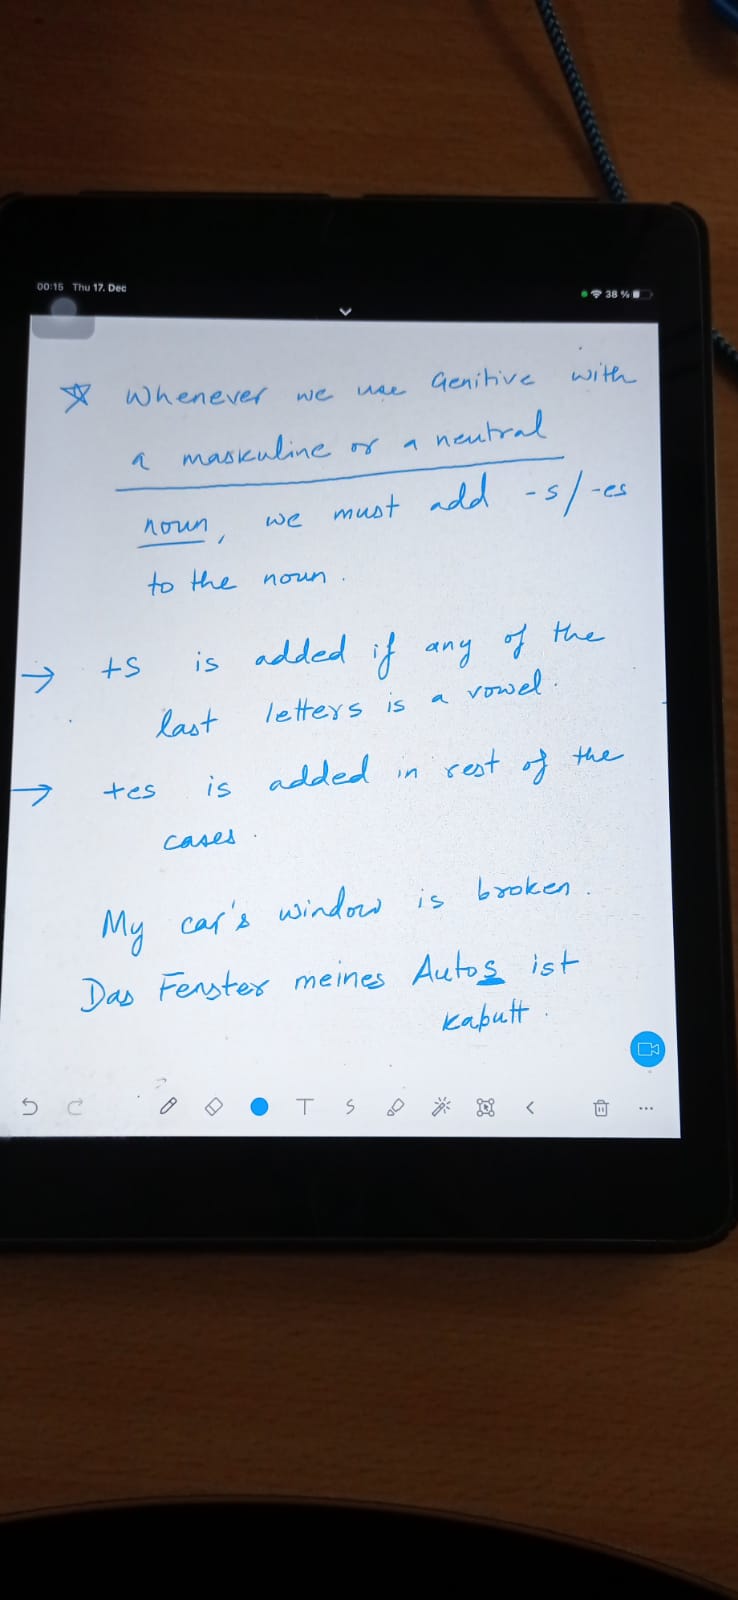 00:15 Thu 17. Dec
38 %
☆ Whenever we use Genitive with
a maskuline or a neutral
noun, we must add -s/-es
to the noun.
→ +s is added if any of the
last letters is a vowel.
→ +es is added in rest of the
cases.
My car's window is broken.
Das Fenster meines Autos ist
kaputt.
T